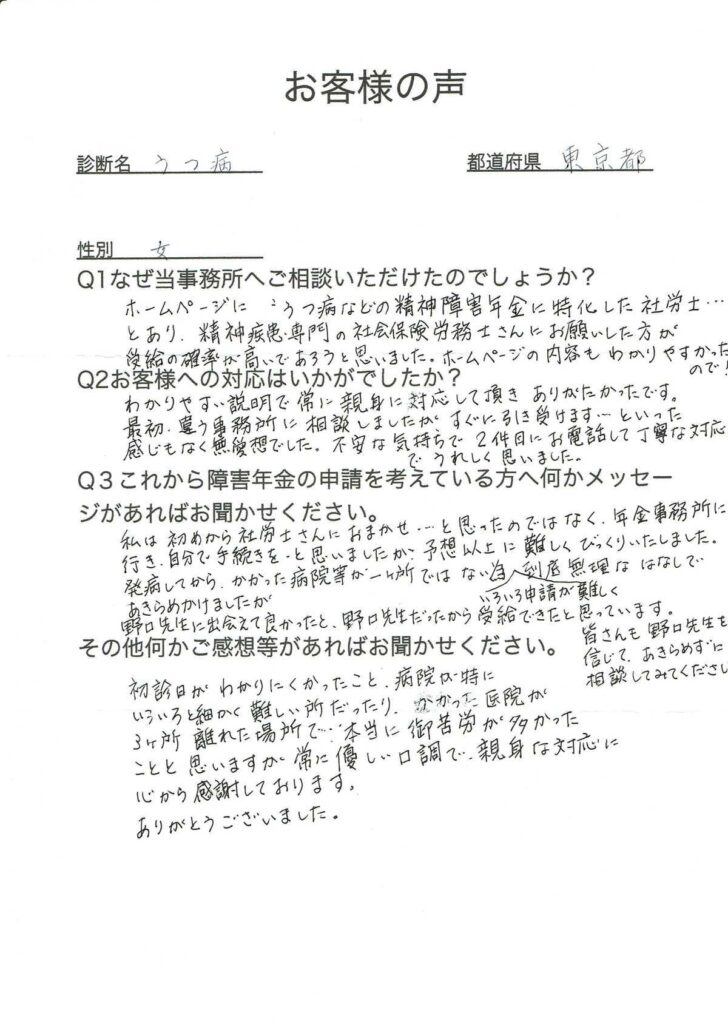 お客様の声
診断名 うつ病
都道府県 東京都
性別 女
Q1なぜ当事務所へご相談いただけたのでしょうか？
ホームページに うつ病などの精神障害年金に特化した社労士…
とあり、精神疾患専門の社会保険労務士さんにお願いした方が
受給の確率が高いであろうと思いました。ホームページの内容もわかりやすかった
ので！
Q2お客様への対応はいかがでしたか？
わかりやすい説明で常に親身に対応して頂きありがたかったです。
最初、違う事務所に相談しましたがすぐに引き受けます…といった
感じもなく無愛想でした。不安な気持ちで2件目にお電話して丁寧な対応
でうれしく思いました。
Q３これから障害年金の申請を考えている方へ何かメッセー
ジがあればお聞かせください。
私は初めから社労士さんにおまかせ…と思ったのではなく、年金事務所に
行き、自分で手続きを…と思いましたが、予想以上に難しくびっくりいたしました。
発病してから、かかった病院等が一ヶ所ではない為、到底無理なはなしで
いろいろ申請が難しく
あきらめかけましたが
野口先生に出会えて良かったと、野口先生だったから受給できたと思っています。
皆さんも野口先生を
信じて、あきらめずに
相談してみてくださ
その他何かご感想等があればお聞かせください。
初診日がわかりにくかったこと、病院が特に
いろいろと細かく難しい所だったり、かかった医院が
3ヶ所離れた場所で…本当に御苦労が多かった
ことと思いますが常に優しい口調で、親身な対応に
心から感謝しております。
ありがとうございました。